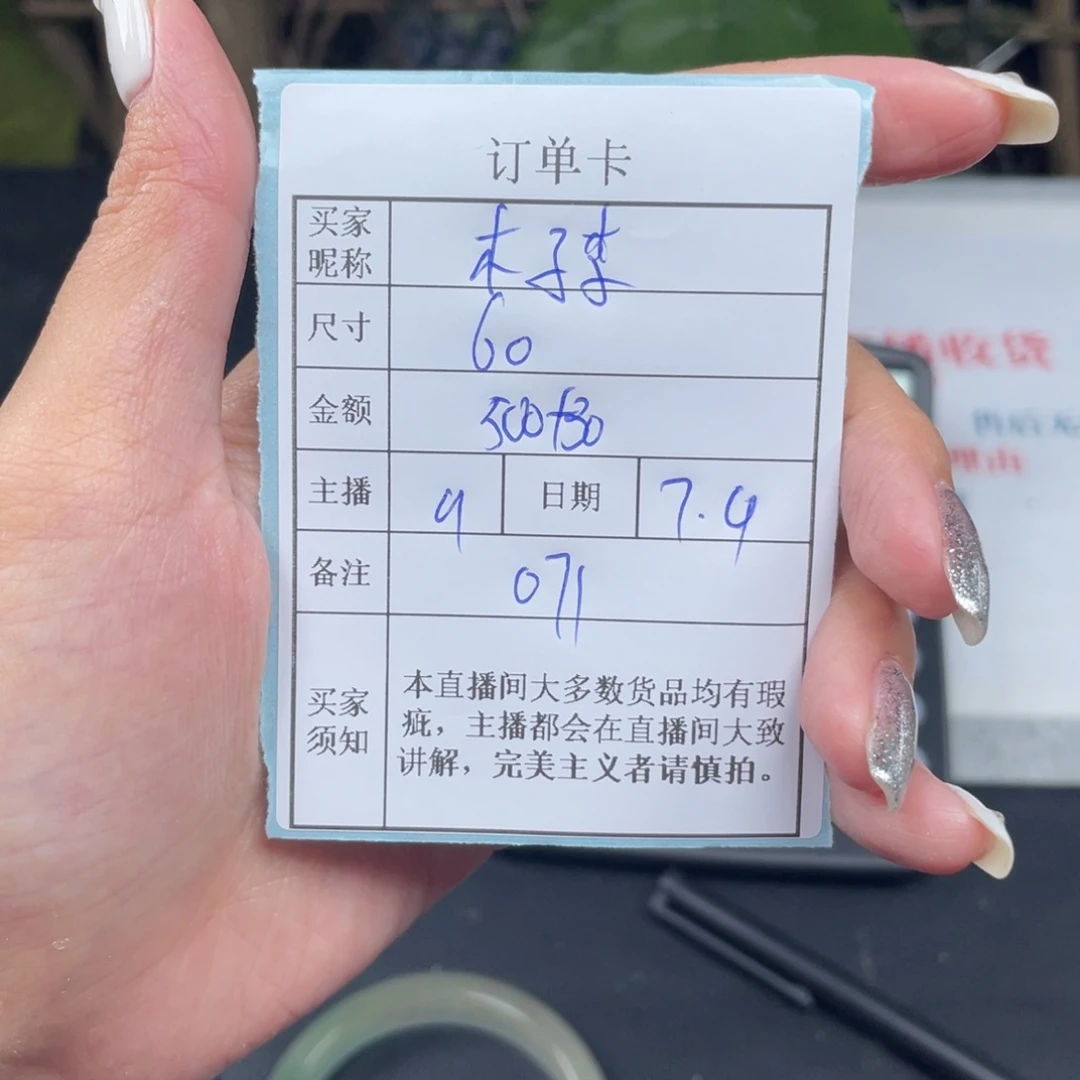 订单卡
买家昵称 木子李
尺寸 60
金额 500+30
主播 9 日期 7.9
备注 071
买家须知
本直播间大多数货品均有瑕
疵，主播都会在直播间大致
讲解，完美主义者请慎拍。
播收货
理由